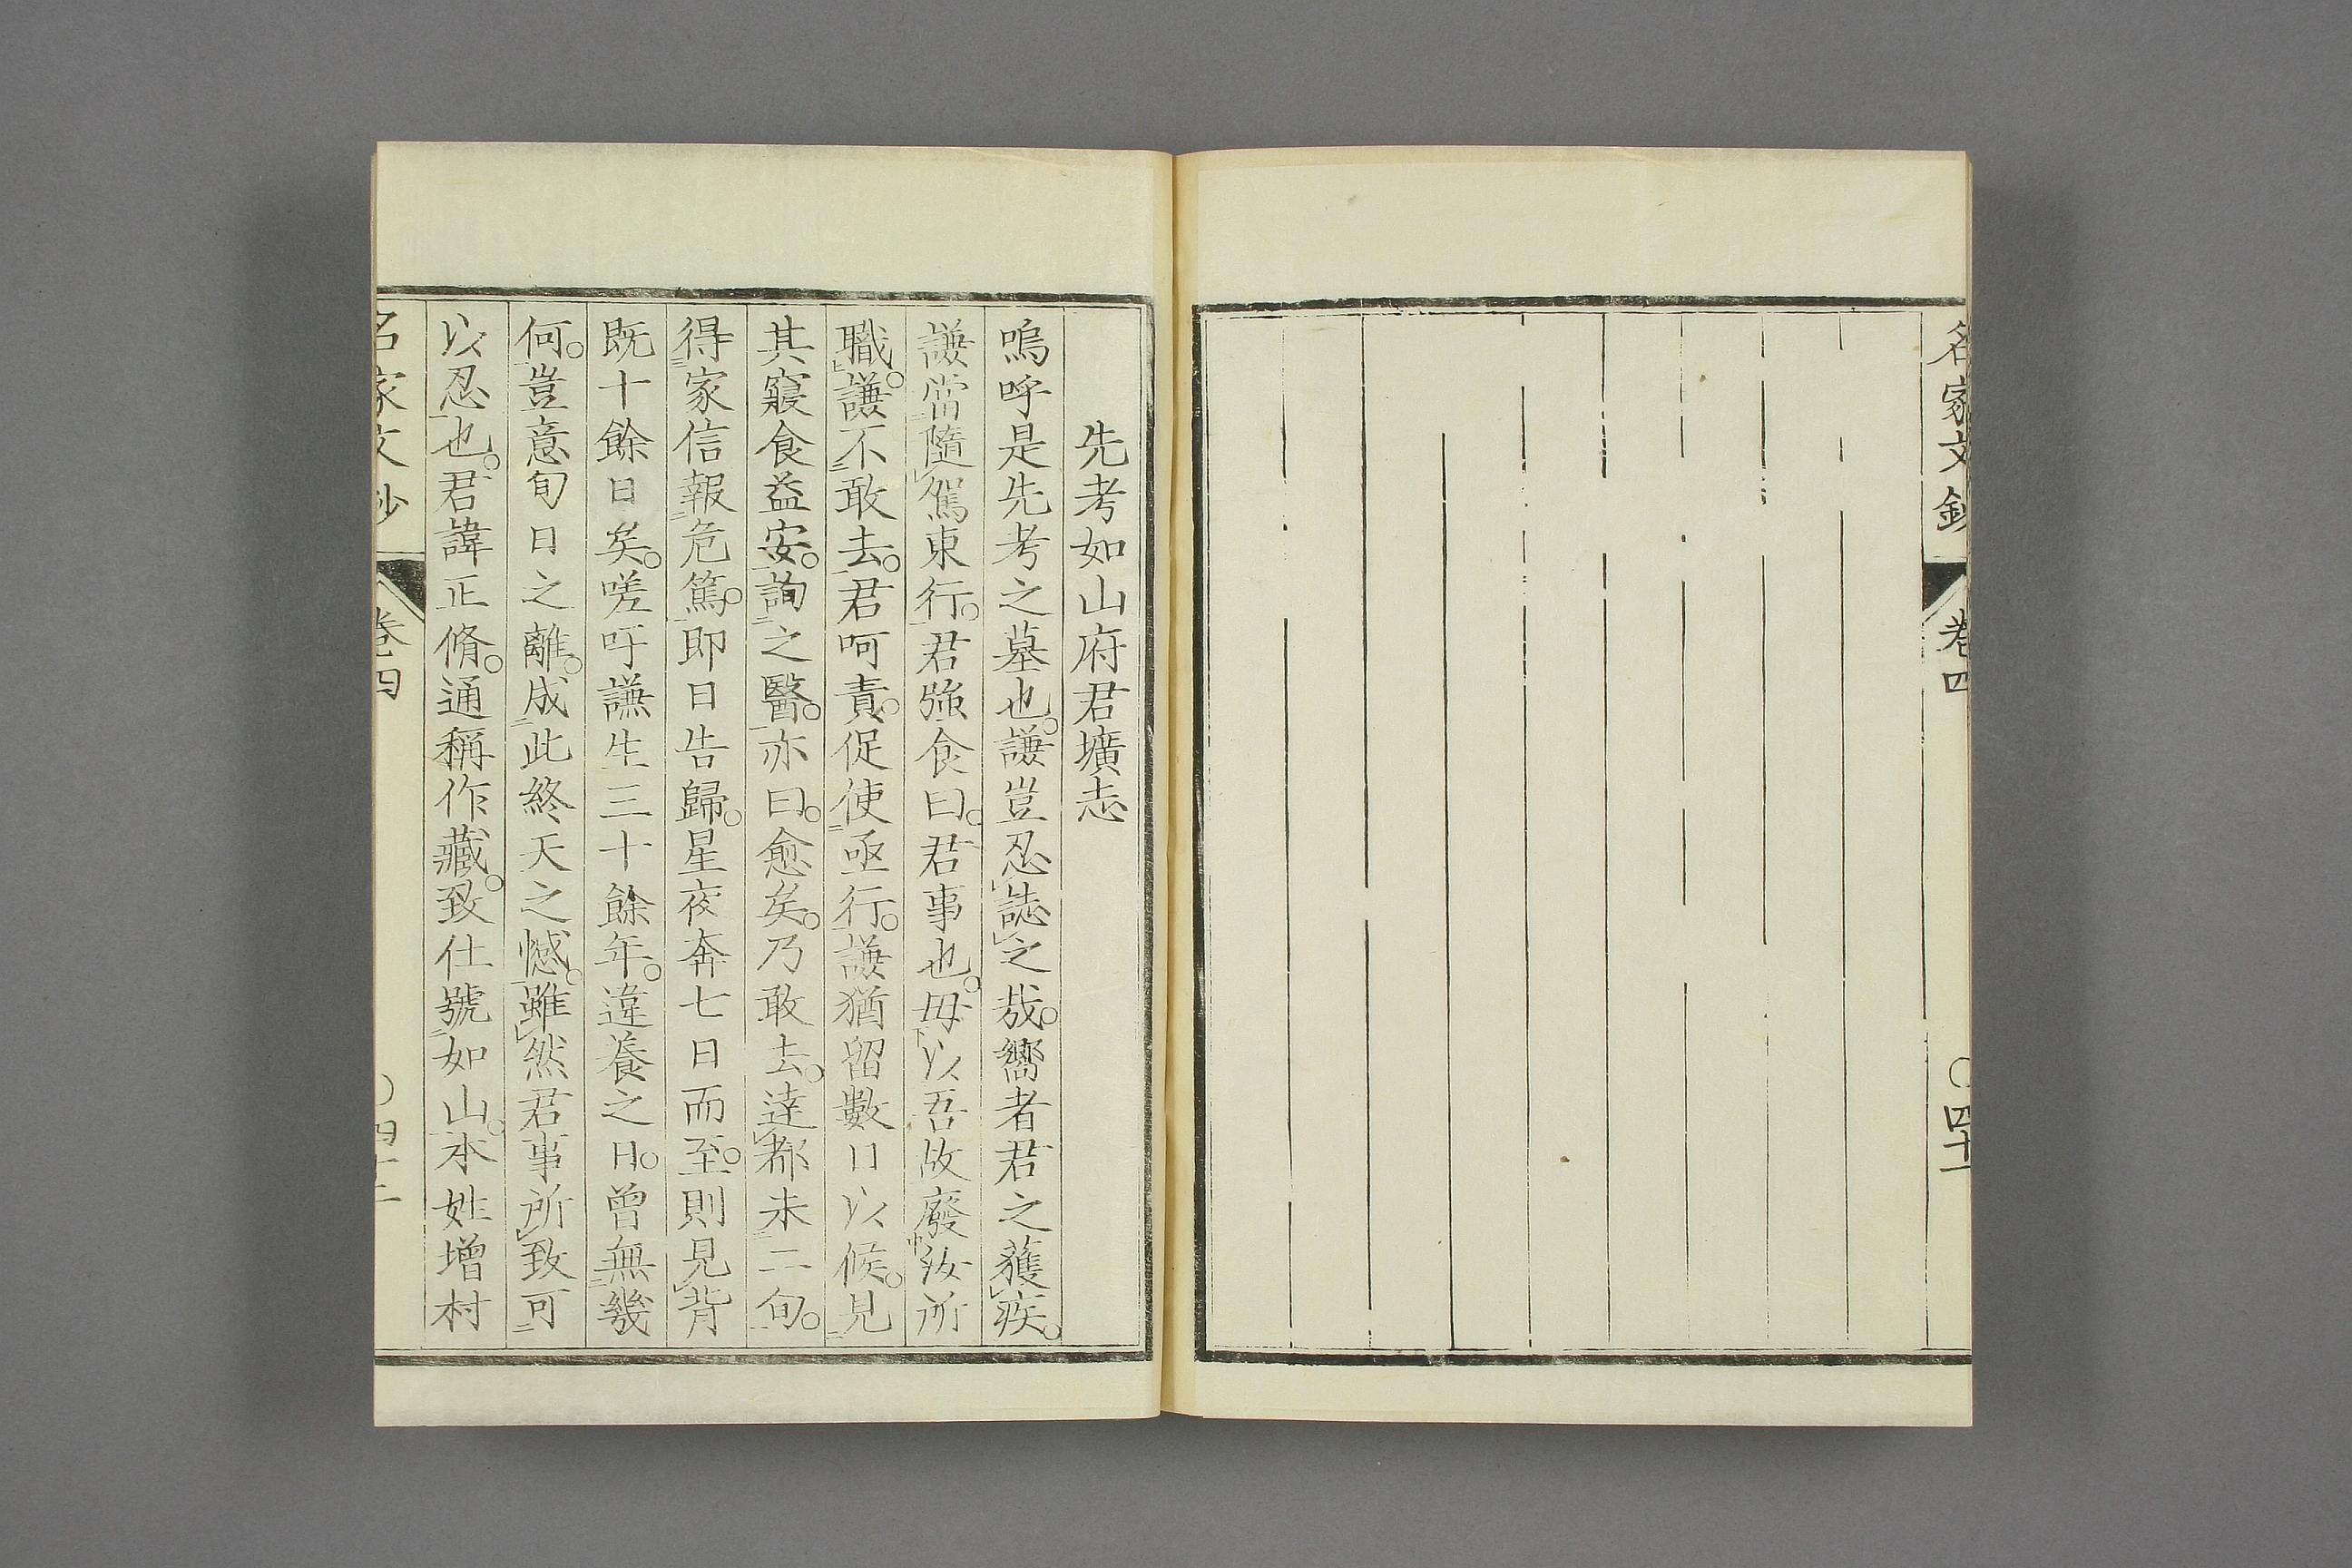 名家文鈔 卷四 〇四十一
先考如山府君壙志
嗚呼是先考之墓也。謙豈忍誌之哉。嚮者君之獲疾。
謙當隨駕東行。君強食曰。君事也。毋以吾故廢汝所
職。謙不敢去。君呵責。促使亟行。謙猶留數日以候。見
其寢食益安。詢之醫。亦曰。愈矣。乃敢去。達都未二旬。
得家信報危篤。即日告歸。星夜奔七日而至。則見背
既十餘日矣。嗟吁謙生三十餘年。違養之日。曾無幾
何。豈意旬日之離。成此終天之憾。雖然君事所致可
以忍也。君諱正脩。通稱作藏。致仕號如山。本姓增村
名家文鈔 卷四 〇四十二